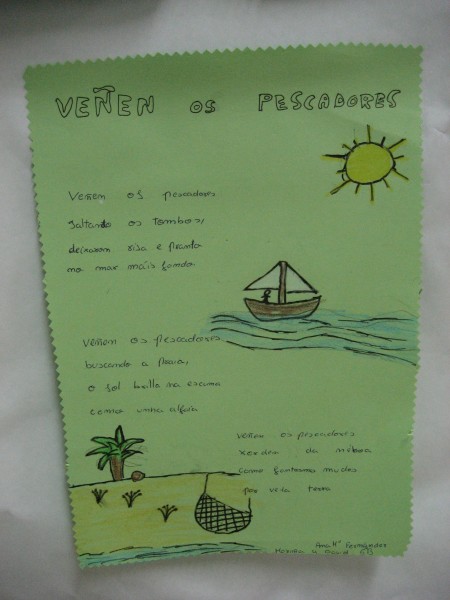 VEÑEN OS PESCADORES
Veñen os pescadores
saltando os tombos,
deixaron risa e pranto
no mar máis fondo
Veñen os pescadores
buscando a praia,
o sol brilla na escama
coma unha alfaia
Veñen os pescadores
xorden da néboa
como fantasmas mudos
por vela terra
Ana Mª Fernández